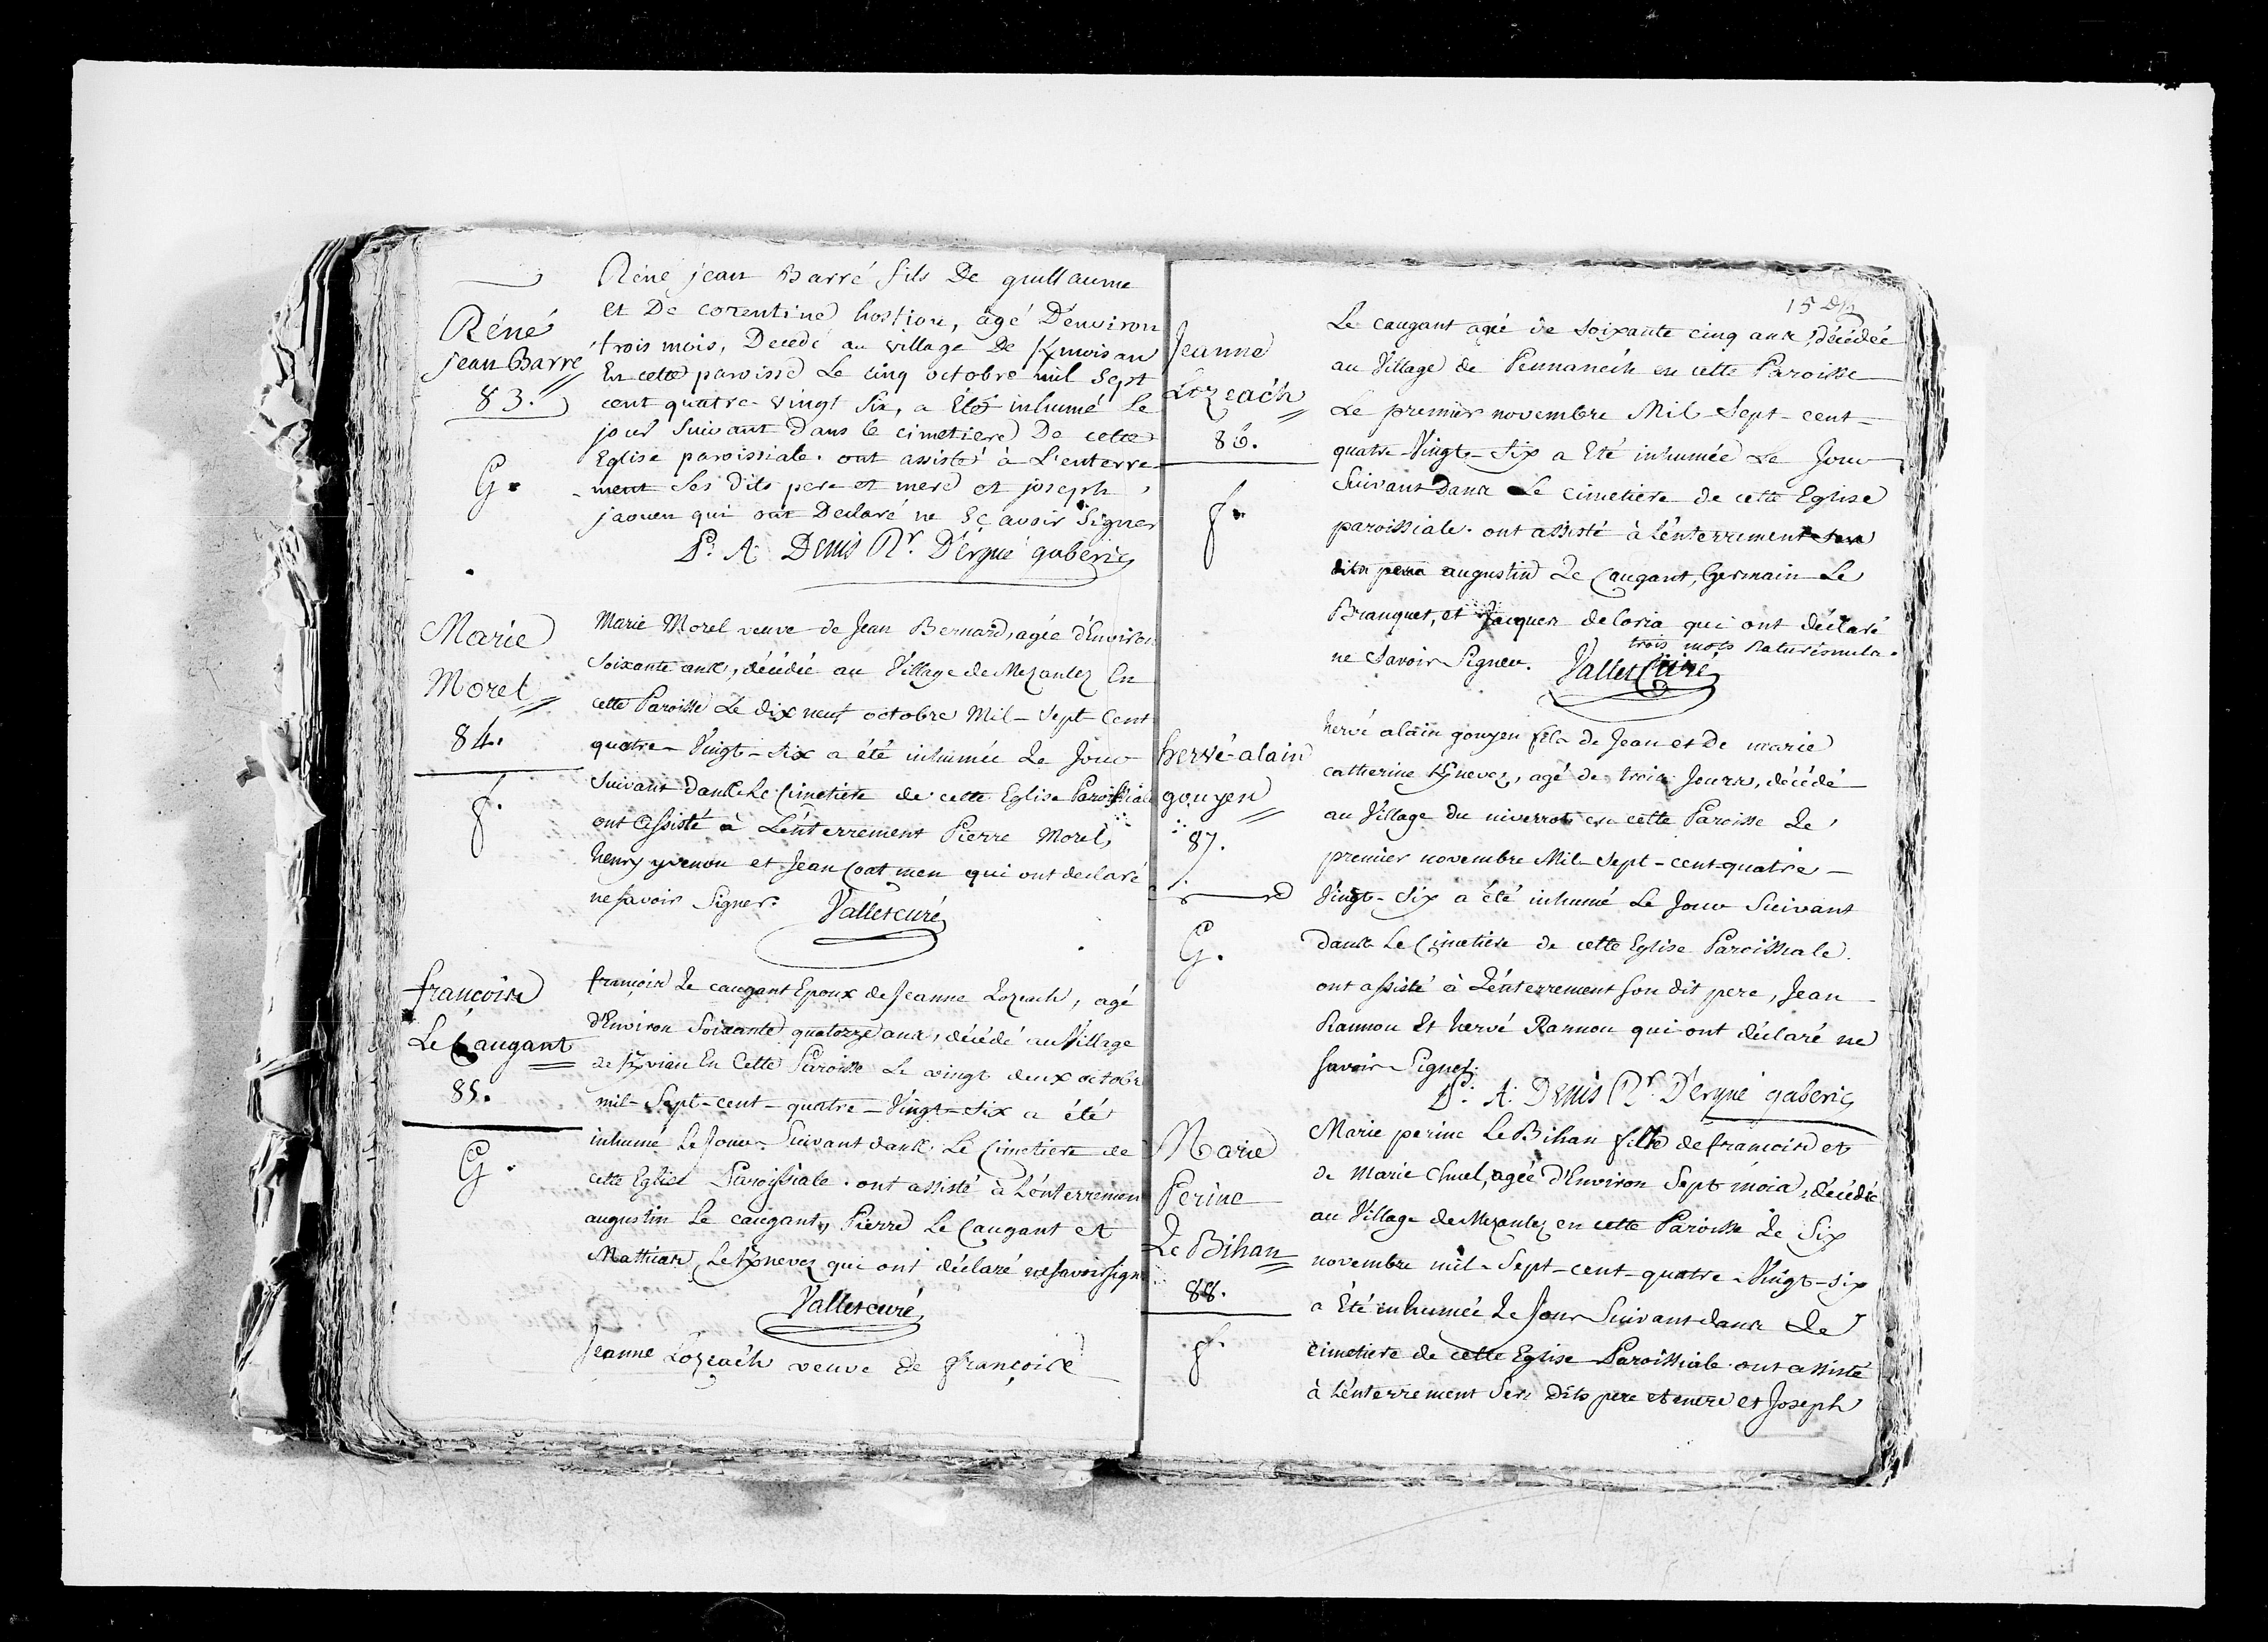 Réné
jean Barré
83.
G.
Réné jean Barré fils De guillaume
et De corentine hostiou, âgé D'environ
trois mois, Decedé au village De
En cette paroisse Le cinq octobre mil Sept
cent quatre-vingt Six, a Eté inhumé le
jour Suivant Dans le cimetiere De cette
Eglise paroissiale. ont assisté à L'enterre-
ment Ses dits pere et mere et joseph
jaouen qui ont Declaré ne Sçavoir Signer
P. A. Denis Rr. D'ergué gabéric
Marie
Morel
84.
f.
Marie Morel veuve de Jean Bernard, agée d'Environ
Soixante ans, décédée au Village de Mezanlez En
cette Paroisse Le dix neuf octobre Mil-Sept-Cent
quatre-Vingt-Six a été inhumée Le Jour
Suivant dans Le Cimetiere de cette Eglise Paroissiale
ont assisté à L'enterrement Pierre Morel,
henry yvenou et Jean Coatmen qui ont declaré
ne savoir Signer. Vallet curé
françois
Le Caugant
85.
G.
françois Le caugant Epoux de Jeanne Lozeach, agé
d'Environ Soixante quatorze ans, décédé au Village
de Kvian En Cette Paroisse Le vingt deux octobre
mil-Sept-cent-quatre-Vingt-Six a été
inhumé Le Jour Suivant dans Le Cimetiere de
cette Eglise Paroissiale. ont assisté à L'énterrement
augustin Le caugant, Pierre Le Caugant et
Mathias Le Knevez qui ont déclaré ne savoir sign
Vallet curé
Jeanne Lozeach veuve de françois
15
Jeanne
Lozeach
86.
f.
Le caugant agée de Soixante cinq ans, décédée
au Village de Pennanech en cette Paroisse
Le premier novembre Mil-Sept-cent-
quatre-Vingt-Six a Eté inhumée Le Jour
Suivant Dans Le cimetiere de cette Eglise
paroissiale. ont assisté à L'énterrement ses
dits pere augustin Le Caugant, Germain Le
Branquet, et Jacques deloria qui ont déclaré
trois mots Raturés nuls.
ne Savoir Signer. Vallet Curé
hervé-alain
gouyen
87.
G.
hervé alain gouyen fils de Jean et de marie
catherine Knevez, agé de trois Jours, décédé
au Village du niverrot en cette Paroisse Le
premier novembre Mil-Sept-cent-quatre-
Vingt-Six a été inhumé Le Jour Suivant
dans Le Cimetiere de cette Eglise Paroissiale.
ont assisté à L'énterrement son dit pere, Jean
Rannou Et hervé Rannou qui ont déclaré ne
savoir Signer.
P. A. Denis Rr. D'ergué gaberic
Marie
Perine
Le Bihan
88.
f.
Marie perine Le Bihan fille de françois et
de Marie Chuel, agée d'Environ Sept mois, décédée
au Village de Mezanlez en cette Paroisse Le Six
novembre mil-Sept-cent-quatre-Vingt-six
a Eté inhumée Le Jour Suivant dans Le
Cimetiere de cette Eglise Paroissiale. ont assisté
à L'énterrement Ses Dits pere et mere et Joseph